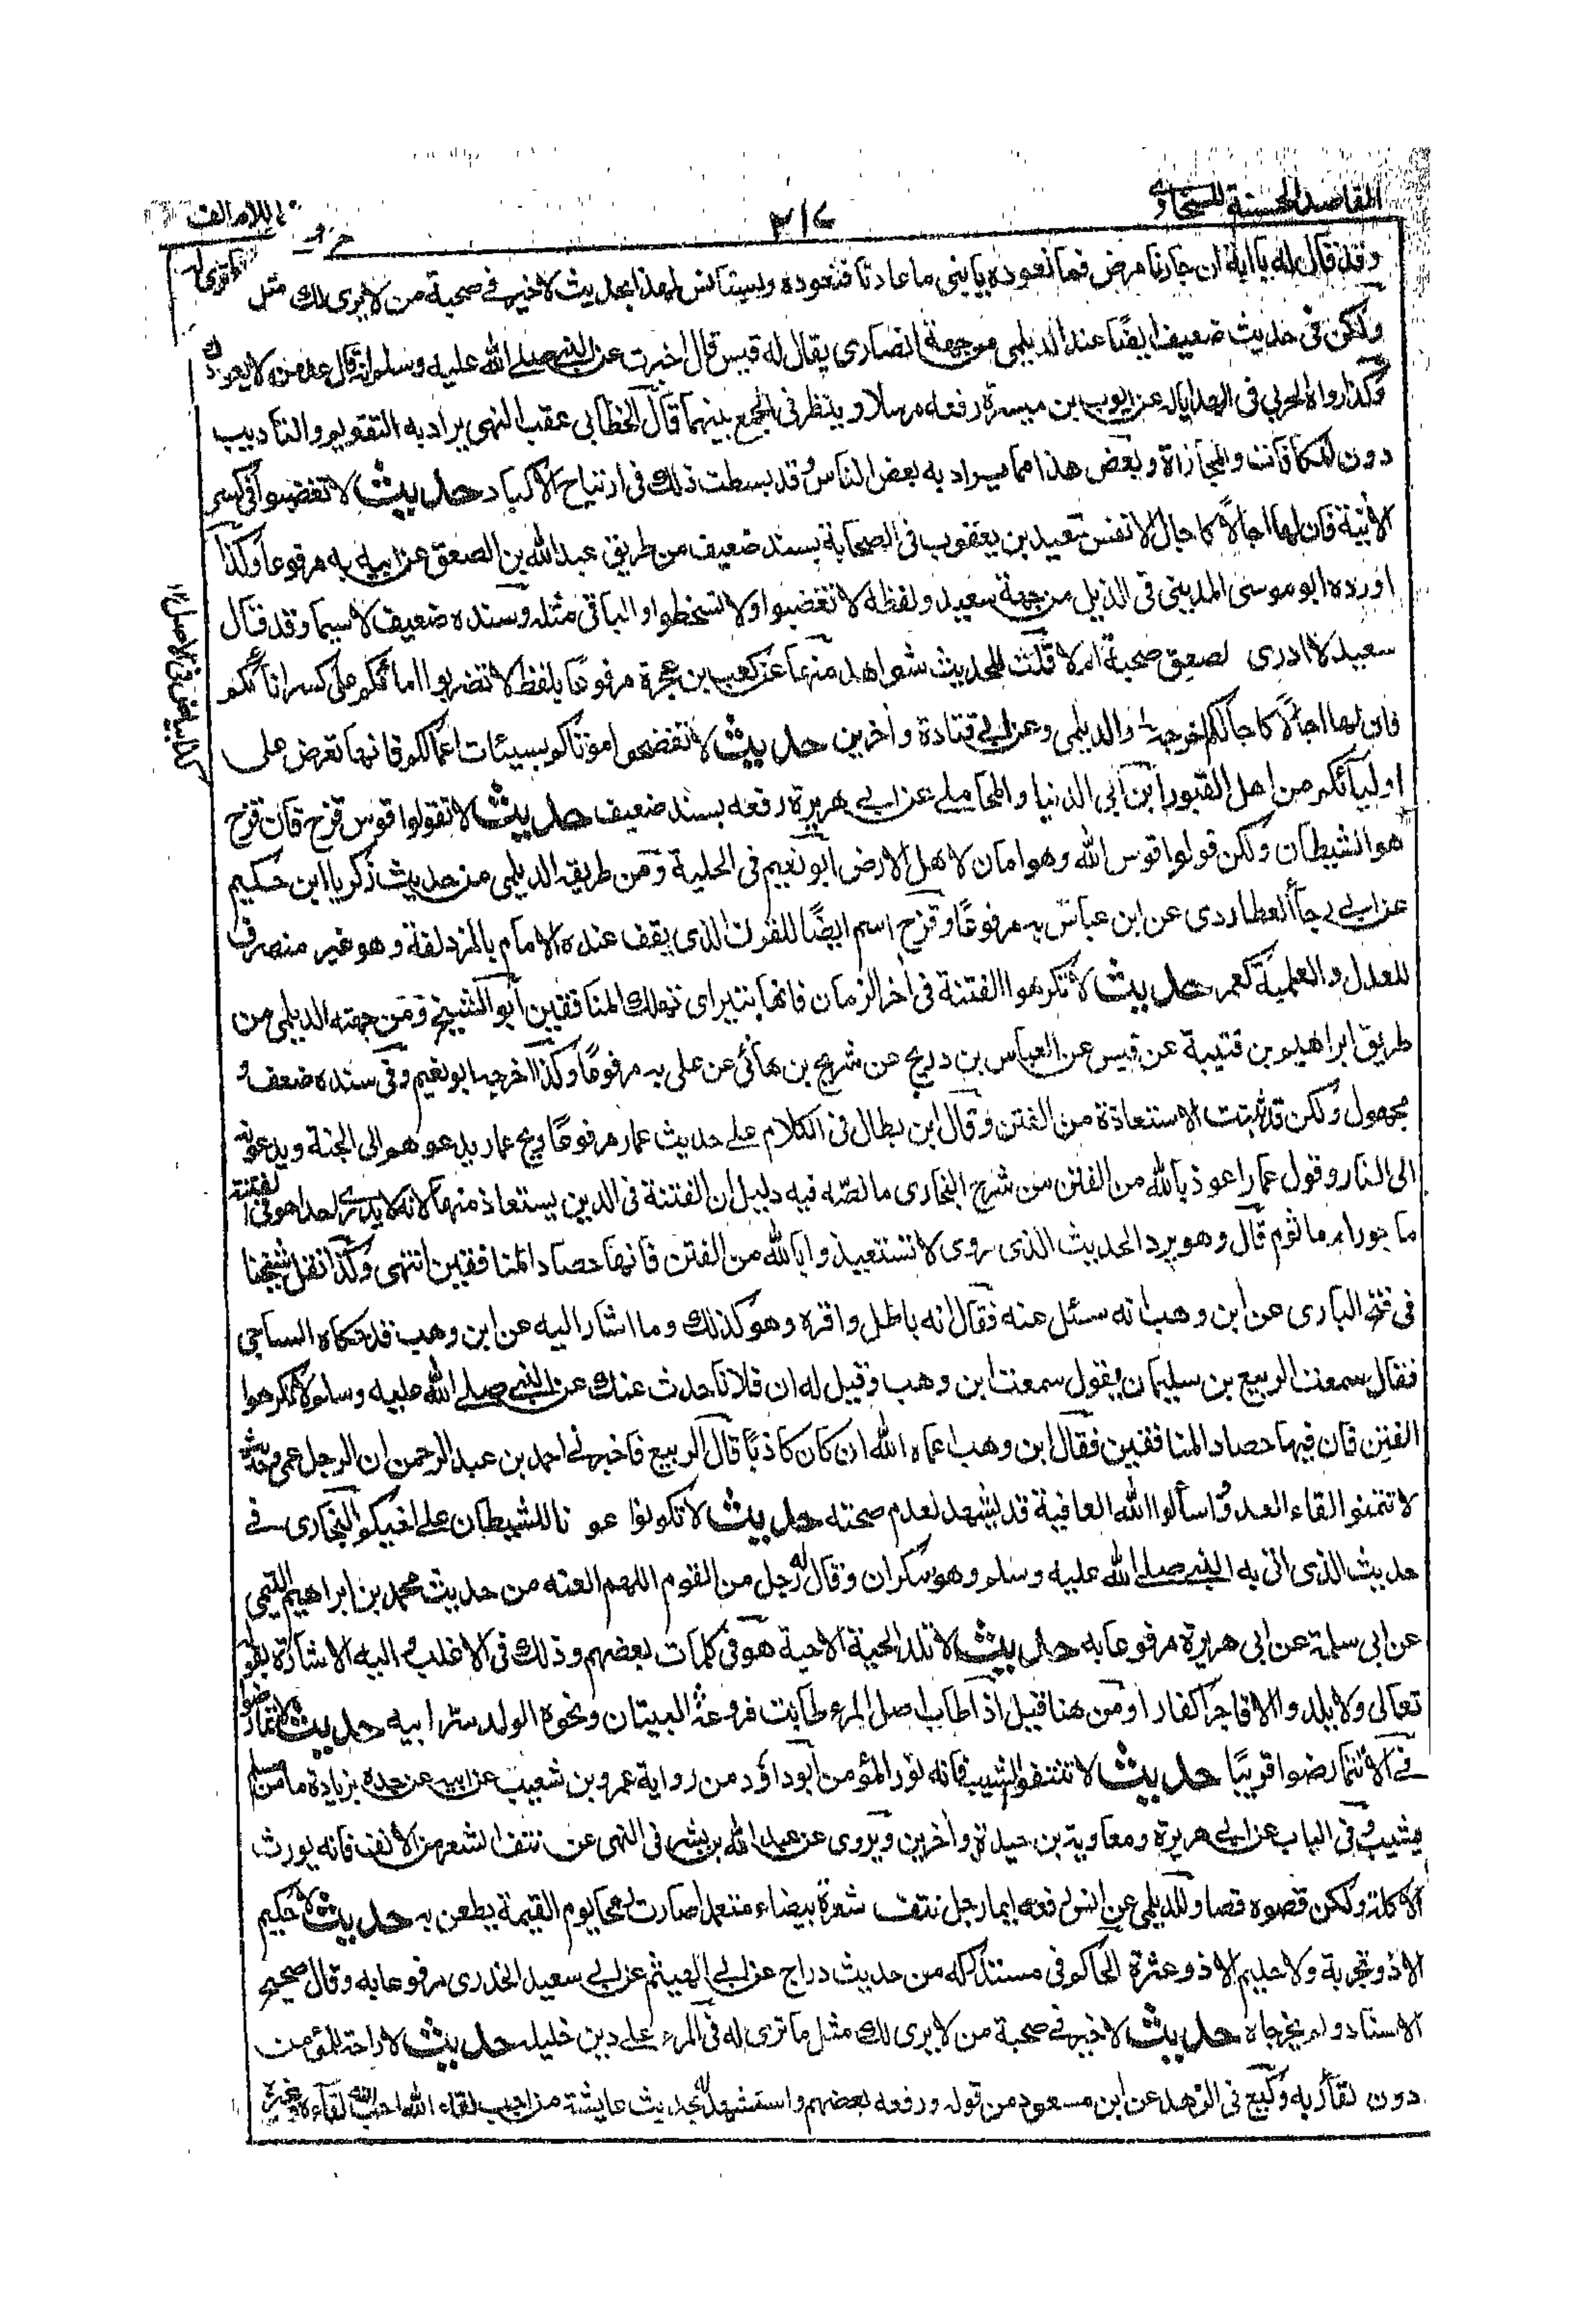 المقاصد الحسنة للسخاوي
٢١٧
حرف اللام الف
وقد قال له يا ابة ان جارنا مرض فما نعوده يا بني ما عادنا فنعوده ويستانس لهذا بحديث لا خير في صحبة من لا يرى لك مثل ما ترى له
ولكن في حديث ضعيف ايضًا عند الديلمي من جهة انصارى يقال له قيس قال اخبرت عن النبي صلى الله عليه وسلم انه قال عد من لا يعودك
وكذا رواه الحربي في الهدايا له عن ايوب بن ميسرة رفعه مرسلا وينظر في الجمع بينهما قال الخطابي عقب النهى يراد به التقويم والتأديب
دون المكافات والمجازاة وبعض هذا مما يراد به بعض الناس وقد بسطت ذلك في ارتياح الاكباد حديث لا تغضبوا في كسر
الآنية فان لها اجالًا كاجال الانفس سعيد بن يعقوب في الصحابة بسند ضعيف من طريق عبد الله بن الصعق عن ابيه به مرفوعا وكذا
اورده ابو موسى المديني في الذيل من جهة سعيد ولفظه لا تغضبوا ولا تسخطوا والباقي مثله وسنده ضعيف لا سيما وقد قال
سعيد لا ادرى لصعق صحبة ام لا قلت للحديث شواهد منها عن كعب بن عجرة مرفوعًا بلفظ لا تضربوا امائكم على كسر انائكم
فان لها اجالًا كاجالكم اخرجه والديلمي وعن ابي قتادة وآخرين حديث لا تفضحوا موتاكم بسيئات اعمالكم فانها تعرض على
اوليائكم من اهل القبور ابن ابي الدنيا والمحاملي عن ابي هريرة رفعه بسند ضعيف حديث لا تقولوا قوس قزح فان قزح
هو الشيطان ولكن قولوا قوس الله وهو امان لاهل الارض ابو نعيم في الحلية ومن طريقه الديلمي من حديث زكريا ابن حكيم
عن ابي رجاء العطاردى عن ابن عباس به مرفوعًا وقزح اسم ايضًا للقرن الذى يقف عنده الامام بالمزدلفة وهو غير منصرف
للعدل والعلمية كعمر حديث لا تكرهوا الفتنة في آخر الزمان فانها تبير اى تهلك المنافقين ابو الشيخ ومن جهته الديلمي من
طريق ابراهيم بن قتيبة عن قيس عن العباس بن دريح عن شريح بن هانئ عن على به مرفوعًا وكذا اخرجه ابو نعيم وفي سنده ضعف و
مجهول ولكن قد ثبتت الاستعاذة من الفتن وقال ابن بطال في الكلام على حديث عمار مرفوعًا ويح عمار يدعوهم الى الجنة ويدعونه
الى النار وقول عمار اعوذ بالله من الفتن من شرح البخارى ما نصه فيه دليل ان الفتنة في الدين يستعاذ منها لانه لا يدرى احد اهو في الفتنة
ماجور ام ماثوم قال وهو يرد الحديث الذى روى لا تستعيذوا بالله من الفتن فانها حصاد المنافقين انتهى وكذا نقل شيخنا
في فتح البارى عن ابن وهب انه سئل عنه فقال انه باطل واقره وهو كذلك وما اشار اليه عن ابن وهب قد حكاه الساجي
فقال سمعت الربيع بن سليمان يقول سمعت ابن وهب وقيل له ان فلانا حدث عنك عن النبي صلى الله عليه وسلم لا تكرهوا
الفتن فان فيها حصاد المنافقين فقال ابن وهب اعماه الله ان كان كاذبًا قال الربيع فاخبرني احمد بن عبد الرحمن ان الرجل عمى وحديث
لا تتمنوا لقاء العدو واسألوا الله العافية قد يشهد لعدم صحته حديث لا تكونوا عونا للشيطان على اخيكم البخارى في
حديث الذى اتى به النبي صلى الله عليه وسلم وهو سكران وقال له رجل من القوم اللهم العنه من حديث محمد بن ابراهيم التيمي
عن ابي سلمة عن ابي هريرة مرفوعا به حديث لا تلد الحية الا حية هو في كلمات بعضهم وذلك في الاغلب واليه الاشارة بقوله
تعالى ولا يلدوا الا فاجرًا كفارا ومن هنا قيل اذا طاب اصل المرء طابت فروعه البيتان ونحوه الولد سر ابيه حديث لا تمارضوا
في لا تتمارضوا قريبًا حديث لا تنتفوا الشيب فانه نور المؤمن ابو داؤد من رواية عمرو بن شعيب عن ابيه عن جده بزيادة ما من مسلم
يشيب وفي الباب عن ابي هريرة ومعاوية بن حيدة وآخرين ويروى عن عبد الله بن بشر في النهى عن نتف الشعر من الانف فانه يورث
الاكلة ولكن قصوه قصا وللديلمي عن انس رفعه ايما رجل نتف شعرة بيضاء متعمدا صارت رمحا يوم القيمة يطعن به حديث لا حكيم
الا ذو تجربة ولا حليم الا ذو عثرة الحاكم في مستدركه من حديث دراج عن ابي الهيثم عن ابي سعيد الخدرى مرفوعا به وقال صحيح
الاسناد ولم يخرجاه حديث لا خير في صحبة من لا يرى لك مثل ما ترى له في المرء على دين خليله حديث لا راحة للمؤمن
دون لقاء ربه وكيع في الزهد عن ابن مسعود من قوله ورفعه بعضهم واستشهد له بحديث عايشة من احب لقاء الله احب الله لقاءه
كذا بياض في الاصل ١٢